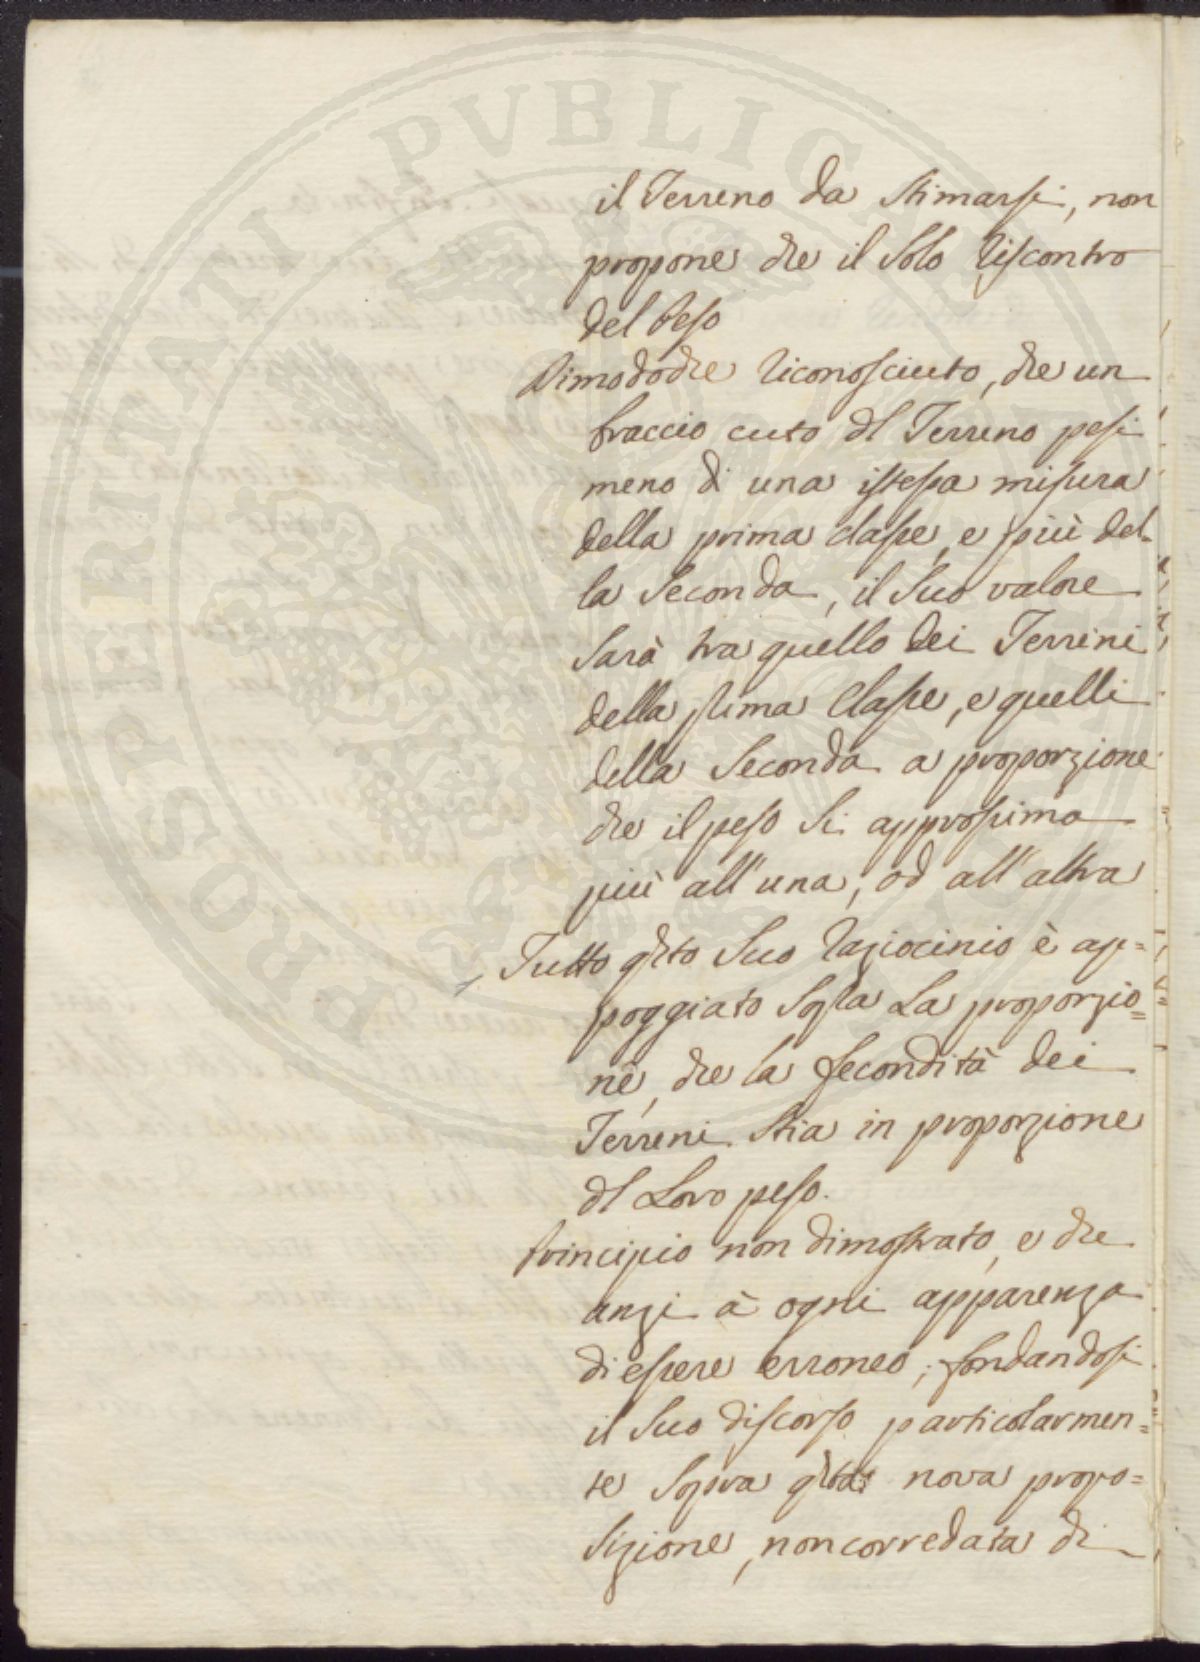 PROSPERITATI PVBLICAE
il Terreno da Stimarsi, non
propone che il Solo riscontro
del Peso
Dimodoche riconosciuto, che un
braccio cubo dl Terreno pesi
meno di una istessa misura
della prima classe, e più del-
la Seconda, il Suo valore
Sarà tra quello dei Terreni
della prima Classe, e quelli
della Seconda a proporzione
che il peso Si approssima
più all'una, od all'altra
Tutto qsto Suo raziocinio è ap=
poggiato Sopra La proporzio=
ne, che la fecondità dei
Terreni Stia in proporzione
dl Loro peso.
Principio non dimostrato, e che
anzi à ogni apparenza
di essere erroneo; fondandosi
il Suo discorso particolarmen=
te Sopra qsta nova propo=
sizione, non corredata di